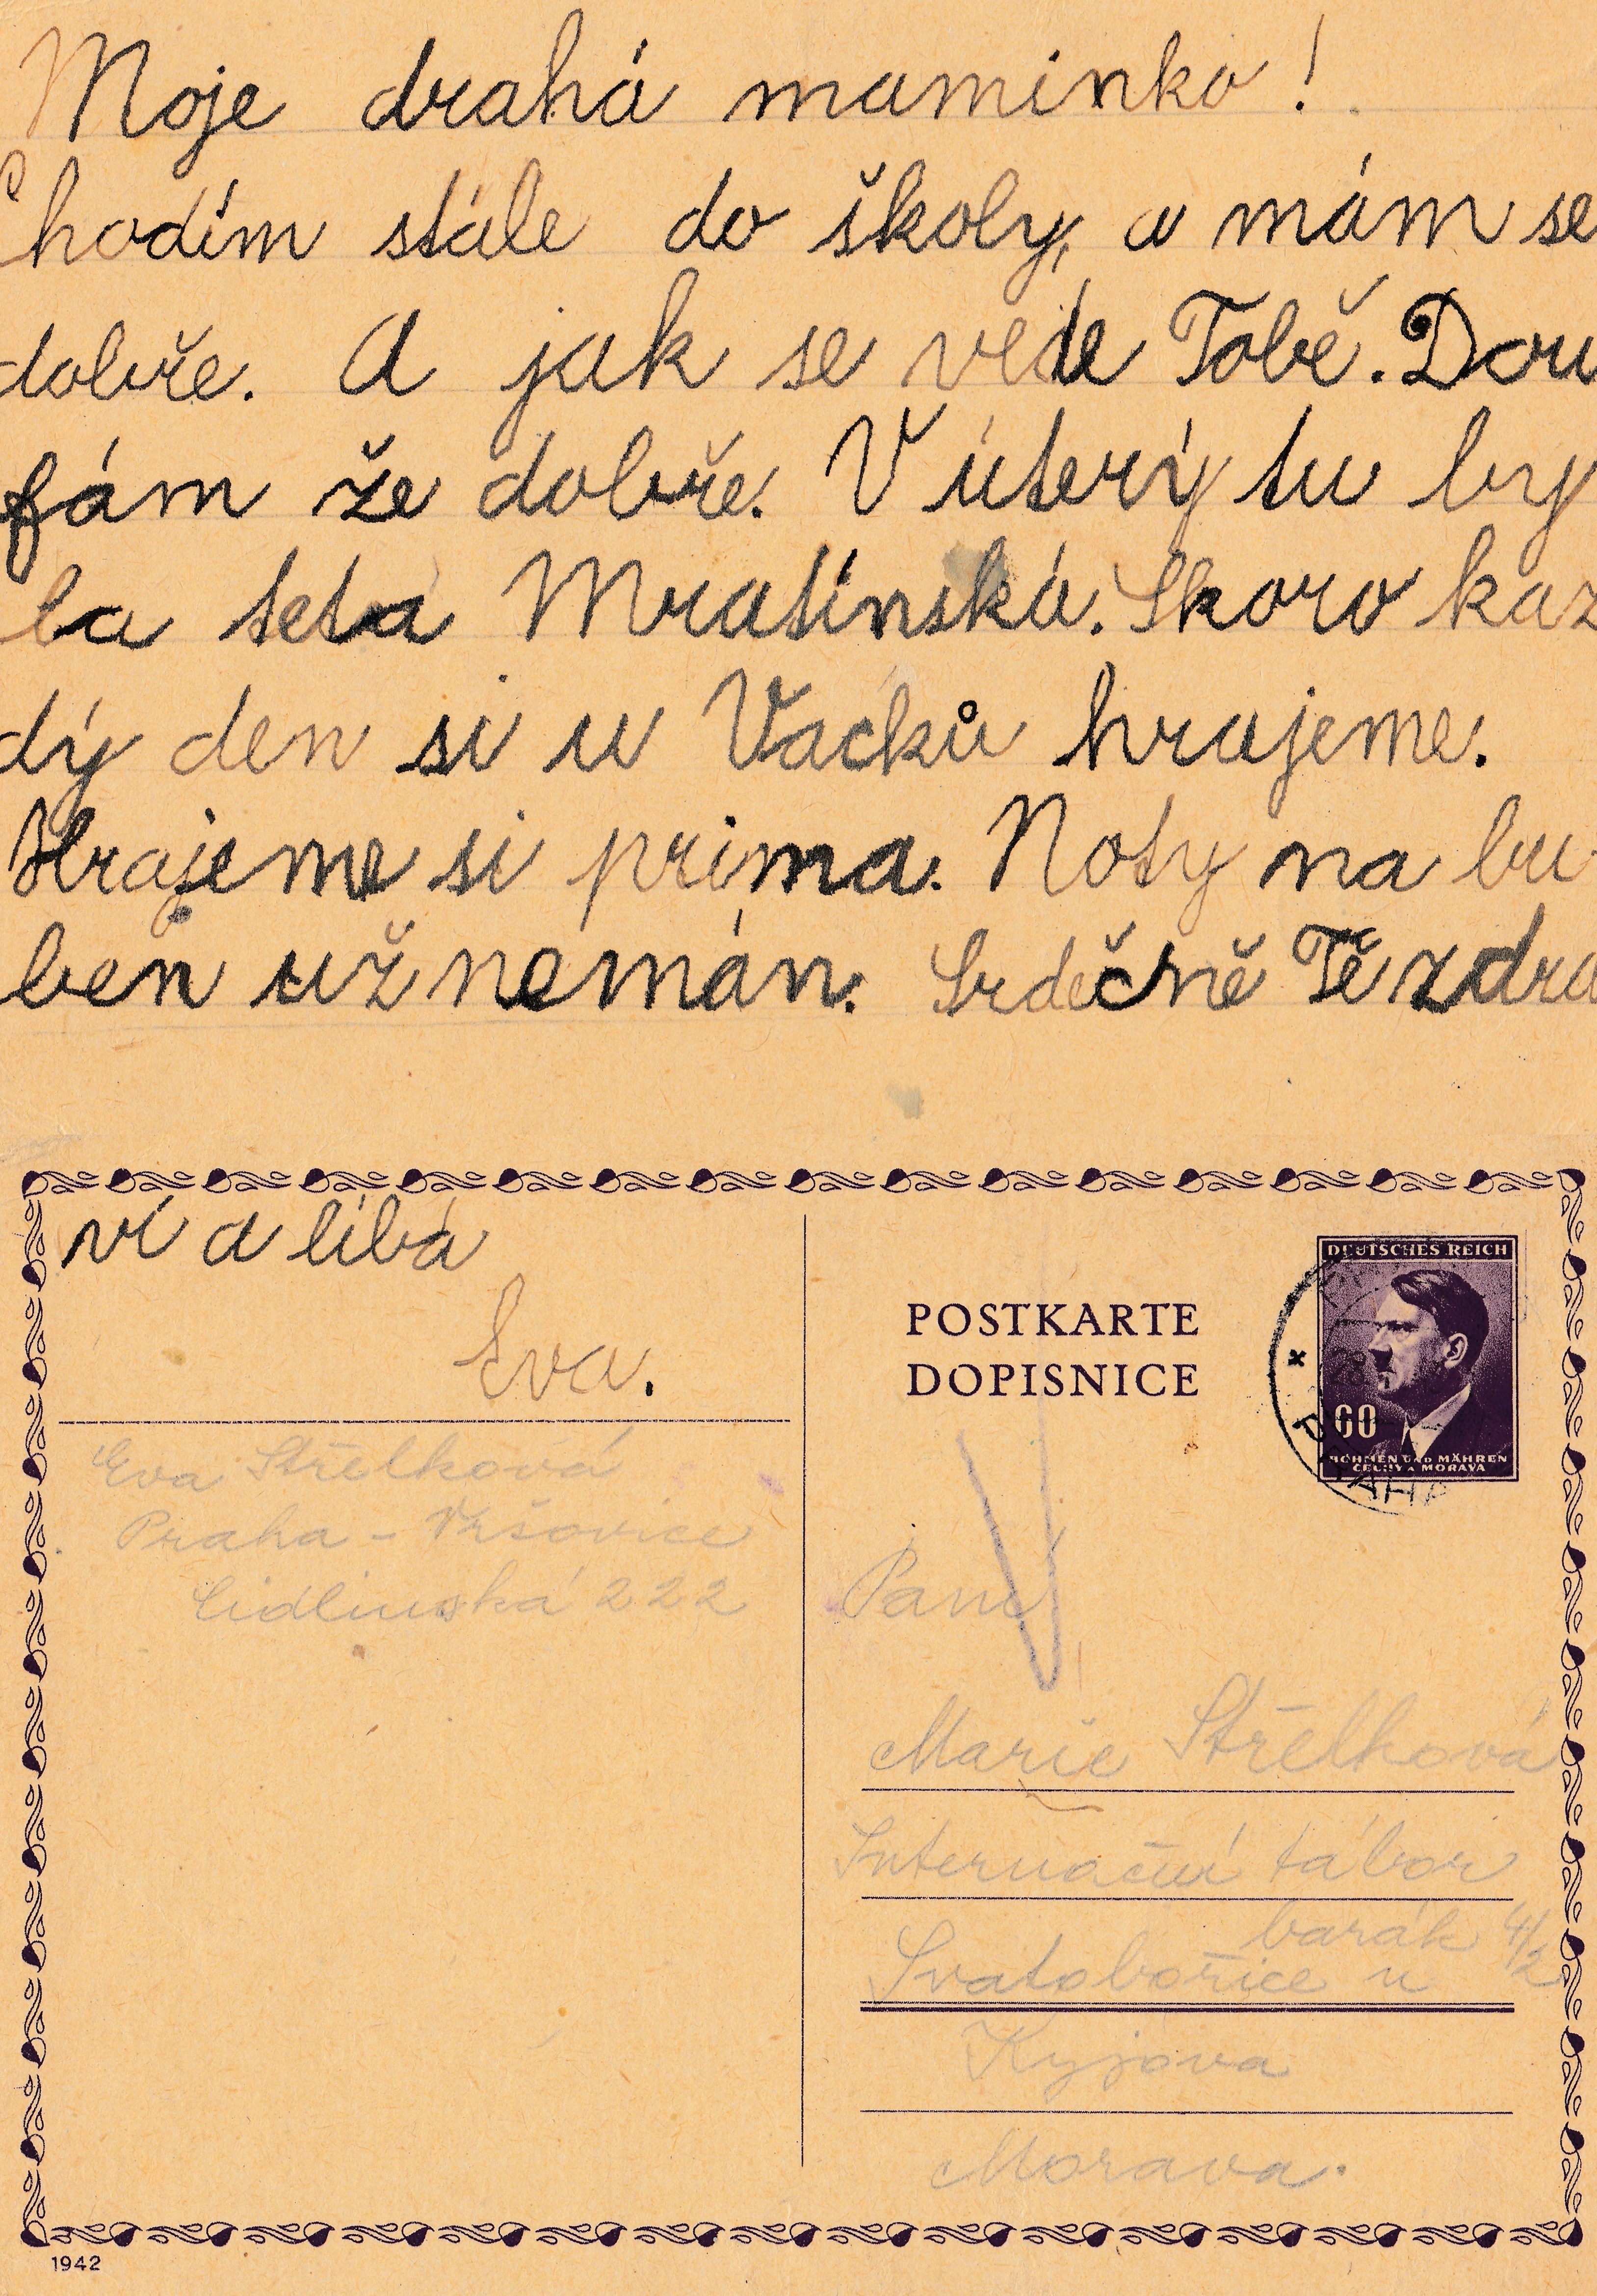 Moje drahá maminko!
Chodím stále do školy, a mám se
dobře. A jak se vede Tobě. Dou
fám že dobře. V úterý tu by
la teta Mratínská. Skoro kaž
dý den si u Vacků hrajeme.
Hrajeme si prima. Noty na bu-
ben už nemán. Srdečně Tě zdra
ví a líbá
Eva.
Eva Střelková
Praha - Vršovice
Cidlinská 222
POSTKARTE
DOPISNICE
DEUTSCHES REICH
60
BÖHMEN UND MÄHREN
ČECHY A MORAVA
PRAHA
Paní
Marie Střelková
Internační tábor
barák 4/2
Svatobořice u
Kyjova
Morava.
1942